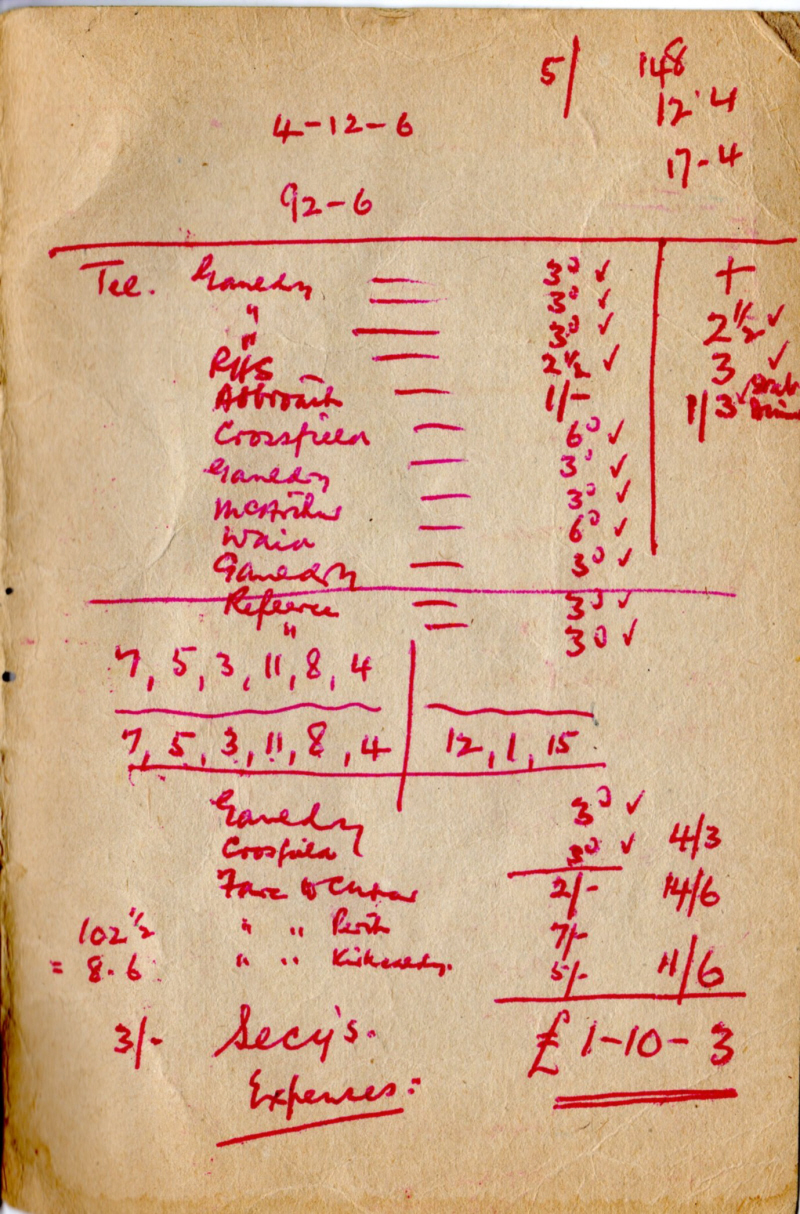 5/ 148
12 4
4-12-6
17-4
92-6
Tel. 3ᴰ ✓ +
" 3ᴰ ✓
" 3ᴰ ✓ 2½ ✓
RHS 2½ ✓ 3 ✓
Arbroath 1/- 1/3 ✓
Crossfield 6ᴰ ✓
3ᴰ ✓
McArthur 3ᴰ ✓
Waid 6ᴰ ✓
3ᴰ ✓
Referee 3ᴰ ✓
" 3ᴰ ✓
7, 5, 3, 11, 8, 4
7, 5, 3, 11, 8, 4 12, 1, 15
3ᴰ ✓
Crossfield 3ᴰ ✓ 4/3
Fare to Cupar 2/- 14/6
102½ " " Perth 7/-
= 8.6 " " Kirkcaldy. 5/- 11/6
3/- Secy's. £1-10-3
Expenses:-